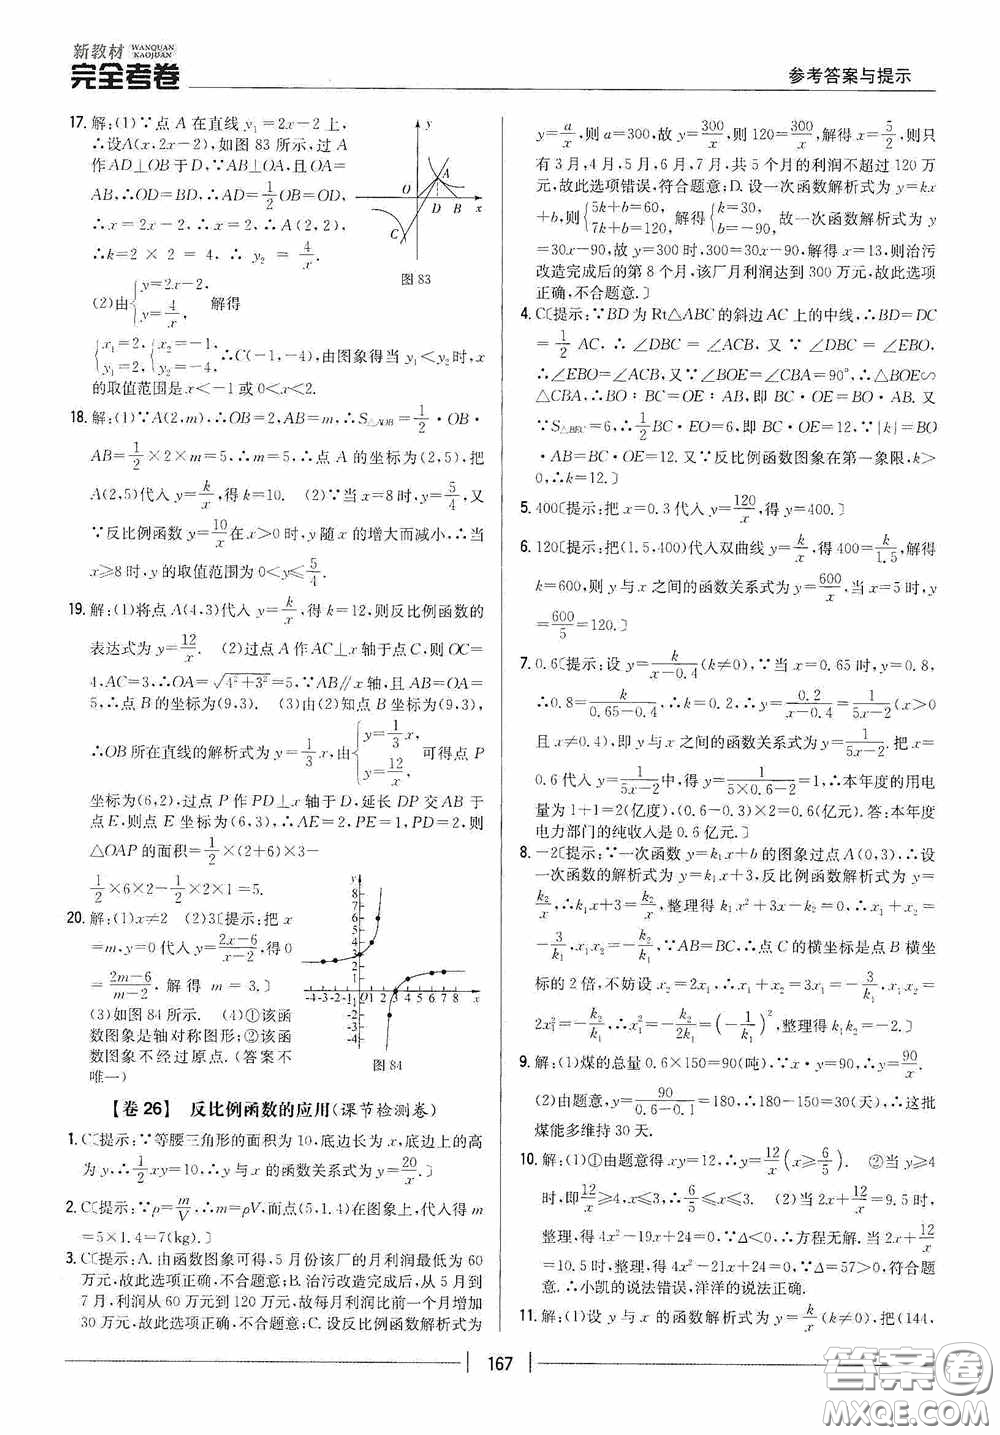 新教材 WANQUAN KAOJUAN
完全考卷
参考答案与提示
17. 解:(1)∵点 A 在直线 y₁=2x-2 上,
∴设A(x,2x-2),如图 83 所示,过 A
作AD⊥OB于D,∵AB⊥OA,且OA=
AB,∴OD=BD,∴AD=1/2 OB=OD,
∴x=2x-2,∴x=2,∴A(2,2),
∴k=2×2=4,∴y₂=4/x.
(2)由{y=2x-2, y=4/x, 解得
{x₁=2, y₁=2, {x₂=-1, y₂=-4, ∴C(-1,-4),由图象得当 y₁<y₂时,x
的取值范围是x<-1或0<x<2.
y A O D B x C
图 83
18. 解:(1)∵A(2,m),∴OB=2,AB=m,∴S△AOB=1/2·OB·
AB=1/2×2×m=5,∴m=5,∴点 A 的坐标为(2,5),把
A(2,5)代入 y=k/x,得k=10. (2)∵当x=8时,y=5/4,又
∵反比例函数y=10/x在x>0时,y随x的增大而减小,∴当
x≥8时,y的取值范围为0<y≤5/4.
19. 解:(1)将点A(4,3)代入 y=k/x,得 k=12,则反比例函数的
表达式为y=12/x. (2)过点A作AC⊥x轴于点C,则OC=
4,AC=3,∴OA=√(4²+3²)=5,∵AB∥x轴,且AB=OA=
5,∴点 B 的坐标为(9,3). (3)由(2)知点 B坐标为(9,3),
∴OB所在直线的解析式为y=1/3 x,由{y=1/3 x, y=12/x, 可得点 P
坐标为(6,2),过点 P 作PD⊥x轴于D,延长 DP交AB于
点E,则点 E 坐标为(6,3),∴AE=2,PE=1,PD=2,则
△OAP的面积=1/2×(2+6)×3-
1/2×6×2-1/2×2×1=5.
20. 解:(1)x≠2 (2)3〔提示:把 x
=m,y=0代入y=(2x-6)/(x-2),得0
=(2m-6)/(m-2),解得 m=3.〕
(3)如图 84 所示. (4)①该函
数图象是轴对称图形;②该函
数图象不经过原点.(答案不
唯一)
y 8 6 4 3 2 1 -4-3-2-1 O 1 2 3 4 5 6 7 8 x -1 -2 -3 -4
图 84
【卷 26】 反比例函数的应用(课节检测卷)
1. C〔提示:∵等腰三角形的面积为 10,底边长为 x,底边上的高
为 y,∴1/2 xy=10,∴y与x的函数关系式为y=20/x.〕
2. C〔提示:∵ρ=m/V,∴m=ρV,而点(5,1.4)在图象上,代入得 m
=5×1.4=7(kg).〕
3. C〔提示:A. 由函数图象可得,5 月份该厂的月利润最低为 60
万元,故此选项正确,不合题意;B. 治污改造完成后,从 5月到
7 月,利润从60 万元到 120 万元,故每月利润比前一个月增加
30 万元,故此选项正确,不合题意;C. 设反比例函数解析式为
y=a/x,则 a=300,故 y=300/x,则 120=300/x,解得 x=5/2,则只
有 3月,4月,5月,6月,7月,共 5 个月的利润不超过 120 万
元,故此选项错误,符合题意;D. 设一次函数解析式为 y=kx
+b,则{5k+b=60, 7k+b=120, 解得{k=30, b=-90, 故一次函数解析式为 y
=30x-90,故 y=300 时,300=30x-90,解得 x=13,则治污
改造完成后的第 8 个月,该厂月利润达到 300 万元,故此选项
正确,不合题意.〕
4. C〔提示:∵BD 为 Rt△ABC 的斜边 AC 上的中线,∴BD=DC
=1/2 AC,∴∠DBC=∠ACB,又∵∠DBC=∠EBO,
∴∠EBO=∠ACB,又∵∠BOE=∠CBA=90°,∴△BOE∽
△CBA,∴BO:BC=OE:AB,即 BC·OE=BO·AB. 又
∵S△BEC=6,∴1/2 BC·EO=6,即 BC·OE=12,∵|k|=BO
·AB=BC·OE=12. 又∵反比例函数图象在第一象限,k>
0,∴k=12.〕
5. 400〔提示:把 x=0.3 代入 y=120/x,得 y=400.〕
6. 120〔提示:把(1.5,400)代入双曲线 y=k/x,得 400=k/1.5,解得
k=600,则 y 与 x 之间的函数关系式为 y=600/x,当 x=5 时,y
=600/5=120.〕
7. 0.6〔提示:设 y=k/(x-0.4)(k≠0),∵当 x=0.65 时,y=0.8,
∴0.8=k/(0.65-0.4),∴k=0.2,∴y=0.2/(x-0.4)=1/(5x-2)(x>0
且 x≠0.4),即 y 与 x 之间的函数关系式为 y=1/(5x-2). 把 x=
0.6 代入 y=1/(5x-2)中,得 y=1/(5×0.6-2)=1,∴本年度的用电
量为 1+1=2(亿度),(0.6-0.3)×2=0.6(亿元). 答:本年度
电力部门的纯收入是 0.6 亿元.〕
8. -2〔提示:∵一次函数 y=k₁x+b 的图象过点 A(0,3),∴设
一次函数的解析式为 y=k₁x+3,反比例函数解析式为 y=
k₂/x,∴k₁x+3=k₂/x,整理得 k₁x²+3x-k₂=0,∴x₁+x₂=
-3/k₁,x₁x₂=-k₂/k₁,∵AB=AC,∴点 C 的横坐标是点 B 横坐
标的 2 倍,不妨设 x₂=2x₁,∴x₁+x₂=3x₁=-3/k₁,x₁x₂=
2x₁²=-k₂/k₁,∴x₁²=-k₂/2k₁=(-1/k₁)²,整理得 k₁k₂=-2.〕
9. 解:(1)煤的总量 0.6×150=90(吨),∵x·y=90,∴y=90/x.
(2)由题意,得 90/(0.6-0.1)=180,180-150=30(天),∴这批
煤能多维持 30 天.
10. 解:(1)①由题意得 xy=12,∴y=12/x(x≥6/5). ②当 y≥4
时,即12/x≥4,x≤3,∴6/5≤x≤3. (2)当 2x+12/x=9.5 时,
整理,得 4x²-19x+24=0,∵Δ<0,∴方程无解. 当 2x+12/x
=10.5 时,整理得 4x²-21x+24=0,∵Δ=57>0,符合题
意. ∴小凯的说法错误,洋洋的说法正确.
11. 解:(1)设 y 与 x 的函数解析式为 y=k/x(k≠0),把(144,
167
答案卷
MXQE.COM